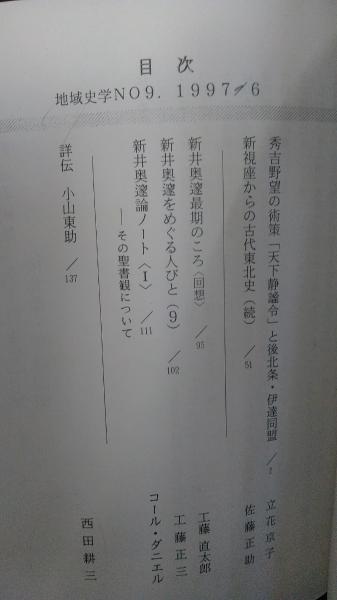 目次
地域史学NO9. 1997/6
秀吉野望の術策「天下静謐令」と後北条・伊達同盟 /2 立花京子
新視座からの古代東北史(続) /51 佐藤正助
新井奥邃最期のころ〈回想〉 /95 工藤直太郎
新井奥邃をめぐる人びと(9) /102 工藤正三
新井奥邃論ノート〈I〉 /111 コール・ダニエル
――その聖書観について
詳伝 小山東助 /137 西田耕三